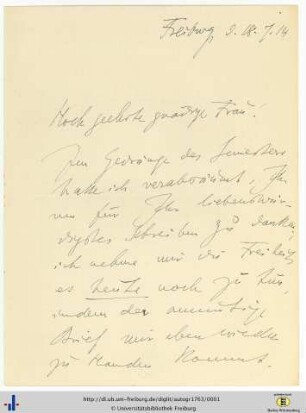 Freiburg, d. 18. 7. 14
Hoch geehrte gnädige Frau!
Im Gedränge des Semesters
hatte ich versäumt, Ih-
nen für Ihr liebenswür-
digstes Schreiben zu danken,
ich nehme mir die Freiheit,
es heute noch zu tun,
indem der anmutige
Brief mir eben wieder
zu Handen kommt.
http://dl.ub.uni-freiburg.de/diglit/autogr1763/0001
© Universitätsbibliothek Freiburg